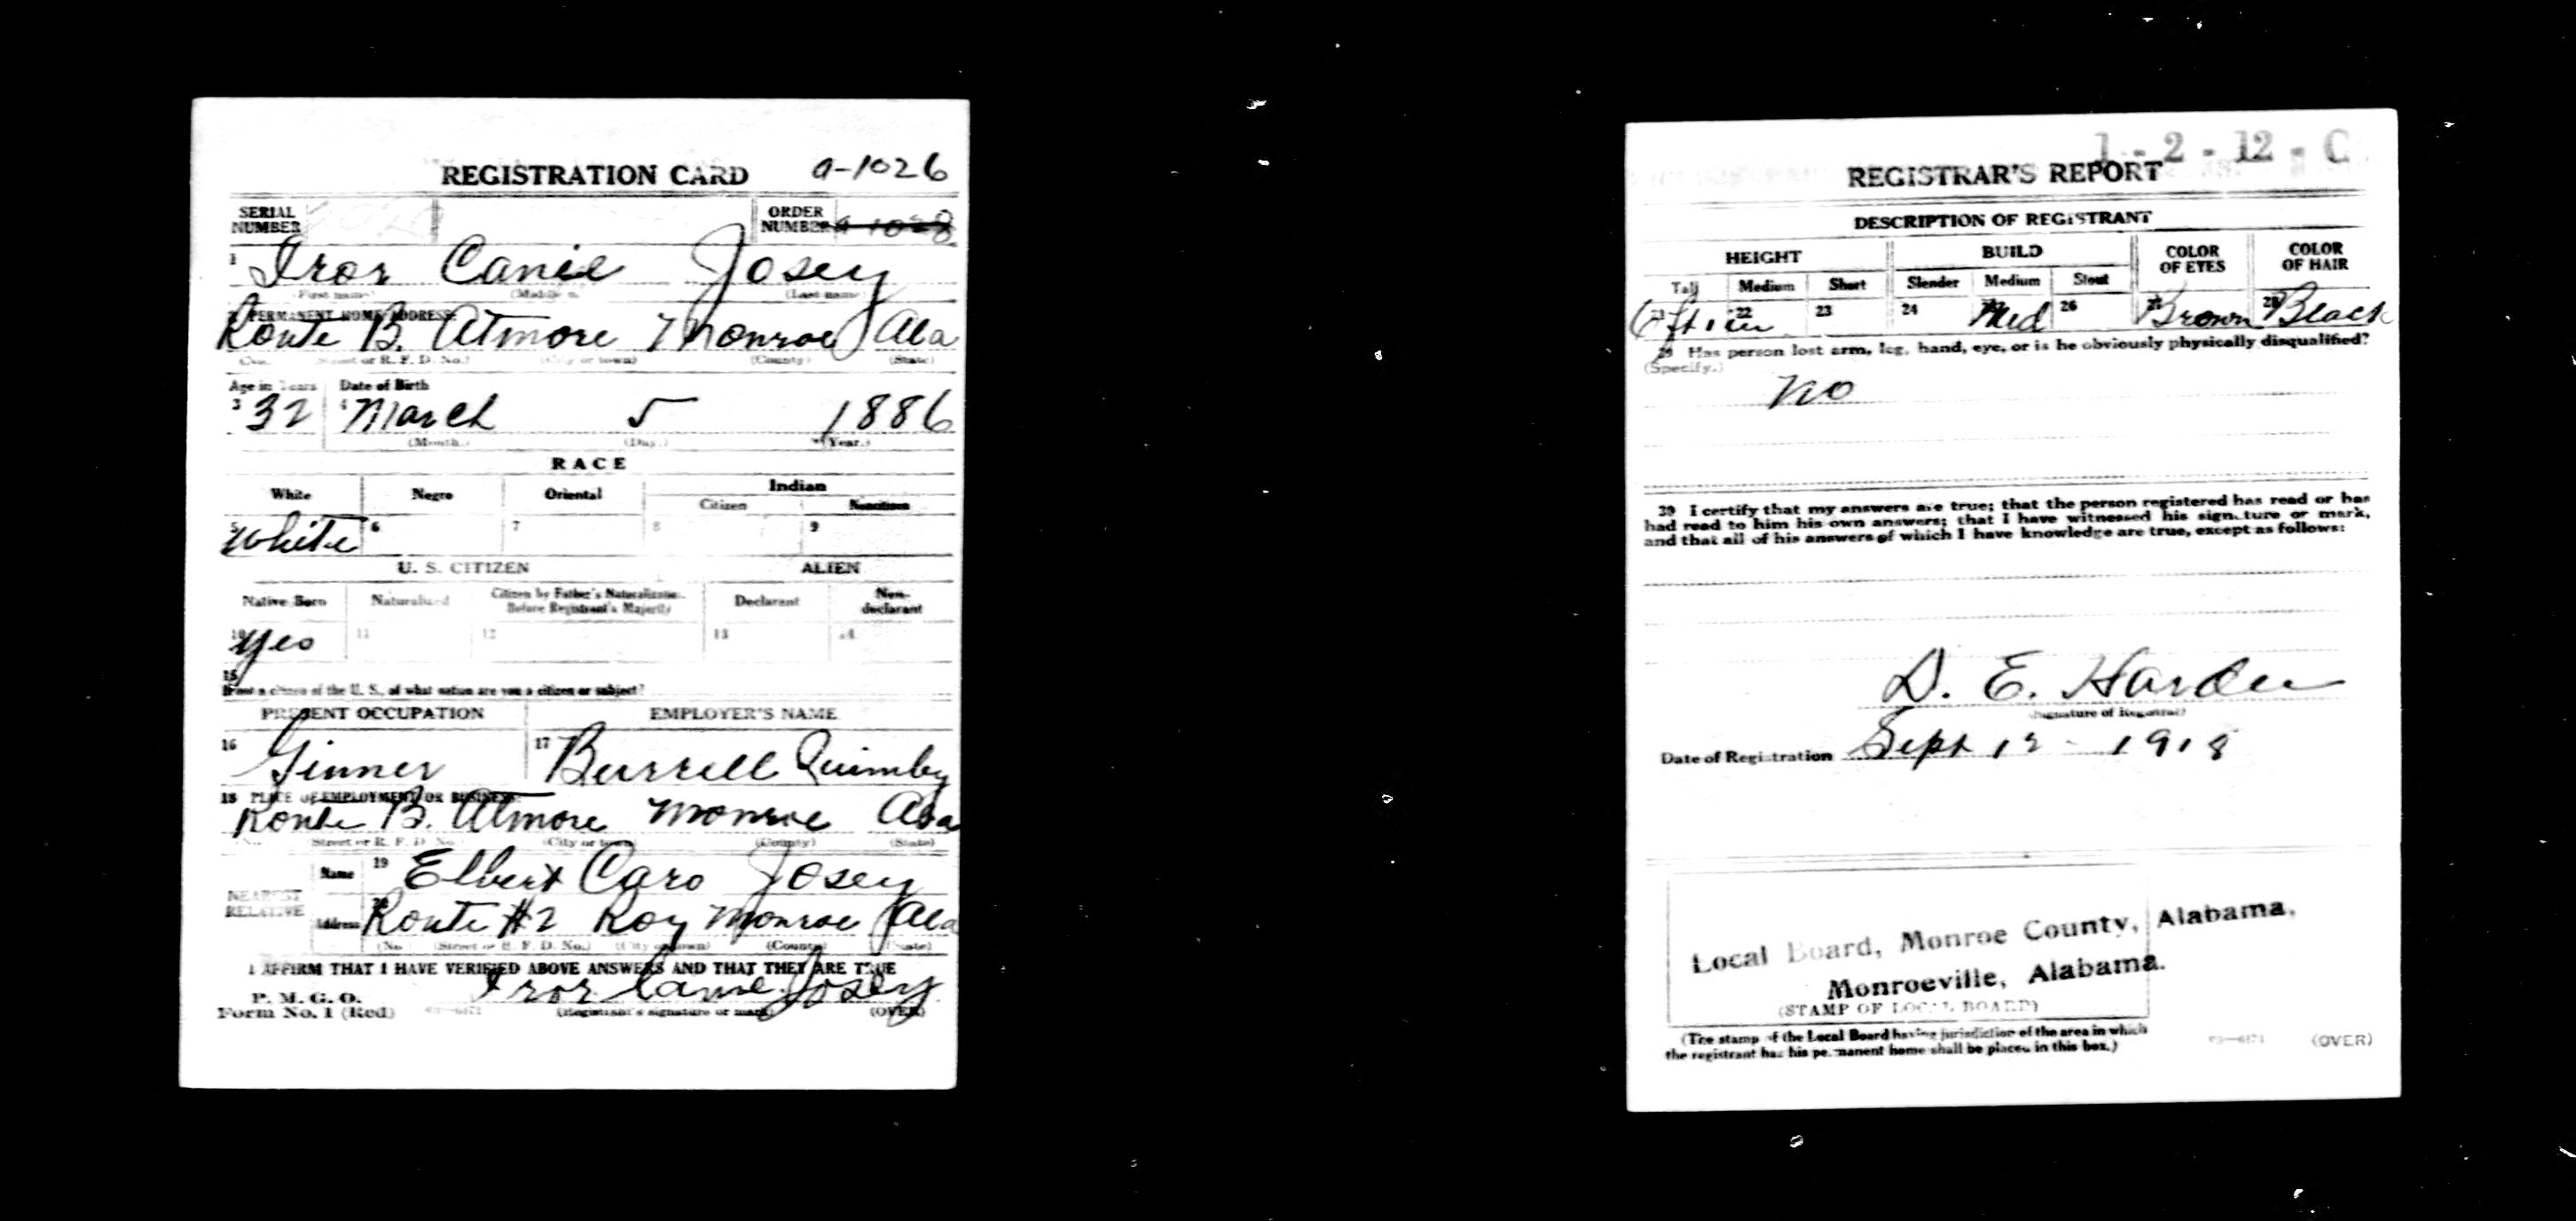 REGISTRATION CARD a-1026
SERIAL NUMBER ORDER NUMBER a 1028
1 Iror Canie Josey
(First name) (Middle name) (Last name)
2 PERMANENT HOME ADDRESS:
Route B. Atmore Monroe Ala
(No.) (Street or R. F. D. No.) (City or town) (County) (State)
Age in Years Date of Birth
3 32 4 March 5 1886
(Month.) (Day.) (Year.)
RACE
White Negro Oriental Indian
Citizen Noncitizen
5 White 6 7 8 9
U. S. CITIZEN ALIEN
Native Born Naturalized Citizen by Father's Naturalization Before Registrant's Majority Declarant Non-declarant
10 Yes 11 12 13 14
15
If not a citizen of the U. S., of what nation are you a citizen or subject?
PRESENT OCCUPATION EMPLOYER'S NAME
16 Ginner 17 Burrell Quimby
18 PLACE OF EMPLOYMENT OR BUSINESS:
Route B. Atmore Monroe Ala
(No.) (Street or R. F. D. No.) (City or town) (County) (State)
NEAREST RELATIVE Name 19 Elbert Caro Josey
Address 20 Route #2 Roy Monroe Ala
(No.) (Street or R. F. D. No.) (City or town) (County) (State)
I AFFIRM THAT I HAVE VERIFIED ABOVE ANSWERS AND THAT THEY ARE TRUE
P. M. G. O.
Form No. 1 (Red) Iror Canie Josey
(Registrant's signature or mark) (OVER)
1-2-12-C
REGISTRAR'S REPORT
DESCRIPTION OF REGISTRANT
HEIGHT BUILD COLOR OF EYES COLOR OF HAIR
Tall Medium Short Slender Medium Stout
21 6 ft 1 in 22 23 24 25 Med 26 27 Brown 28 Black
29 Has person lost arm, leg, hand, eye, or is he obviously physically disqualified?
(Specify.)
no
30 I certify that my answers are true; that the person registered has read or has
had read to him his own answers; that I have witnessed his signature or mark,
and that all of his answers of which I have knowledge are true, except as follows:
D. E. Harden
(Signature of Registrar)
Date of Registration Sept 12 - 1918
Local Board, Monroe County, Alabama,
Monroeville, Alabama.
(STAMP OF LOCAL BOARD)
(The stamp of the Local Board having jurisdiction of the area in which
the registrant has his permanent home shall be placed in this box.)
(OVER)